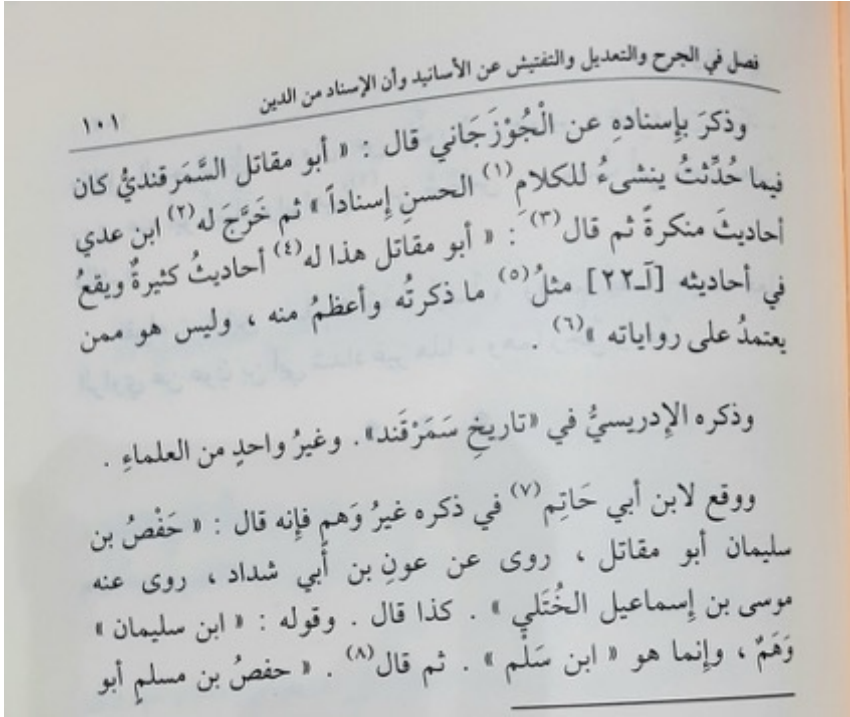 فصل في الجرح والتعديل والتفتيش عن الأسانيد وأن الإسناد من الدين ١٠١
وذكرَ بإسنادهِ عن الْجُوْزَجَاني قال : « أبو مقاتل السَّمَرقنديُّ كان
فيما حُدِّثتُ ينشىءُ للكلام(١) الحسنِ إسناداً » ثم خَرَّجَ له(٢) ابن عدي
أحاديثَ منكرةً ثم قال(٣) : « أبو مقاتل هذا له(٤) أحاديثُ كثيرةٌ ويقعُ
في أحاديثه [آـ٢٢] مثلُ(٥) ما ذكرتُه وأعظمُ منه ، وليس هو ممن
يعتمدُ على رواياته »(٦) .
وذكره الإدريسيُّ في «تاريخِ سَمَرْقَند» . وغيرُ واحدٍ من العلماءِ .
ووقع لابن أبي حَاتِم(٧) في ذكره غيرُ وَهمٍ فإنه قال : « حَفْصُ بن
سليمان أبو مقاتل ، روى عن عونِ بن أبي شداد ، روى عنه
موسى بن إسماعيل الخُتَلي » . كذا قال . وقوله : « ابن سليمان »
وَهَمٌ ، وإنما هو « ابن سَلْم » . ثم قال(٨) . « حفصُ بن مسلمٍ أبو